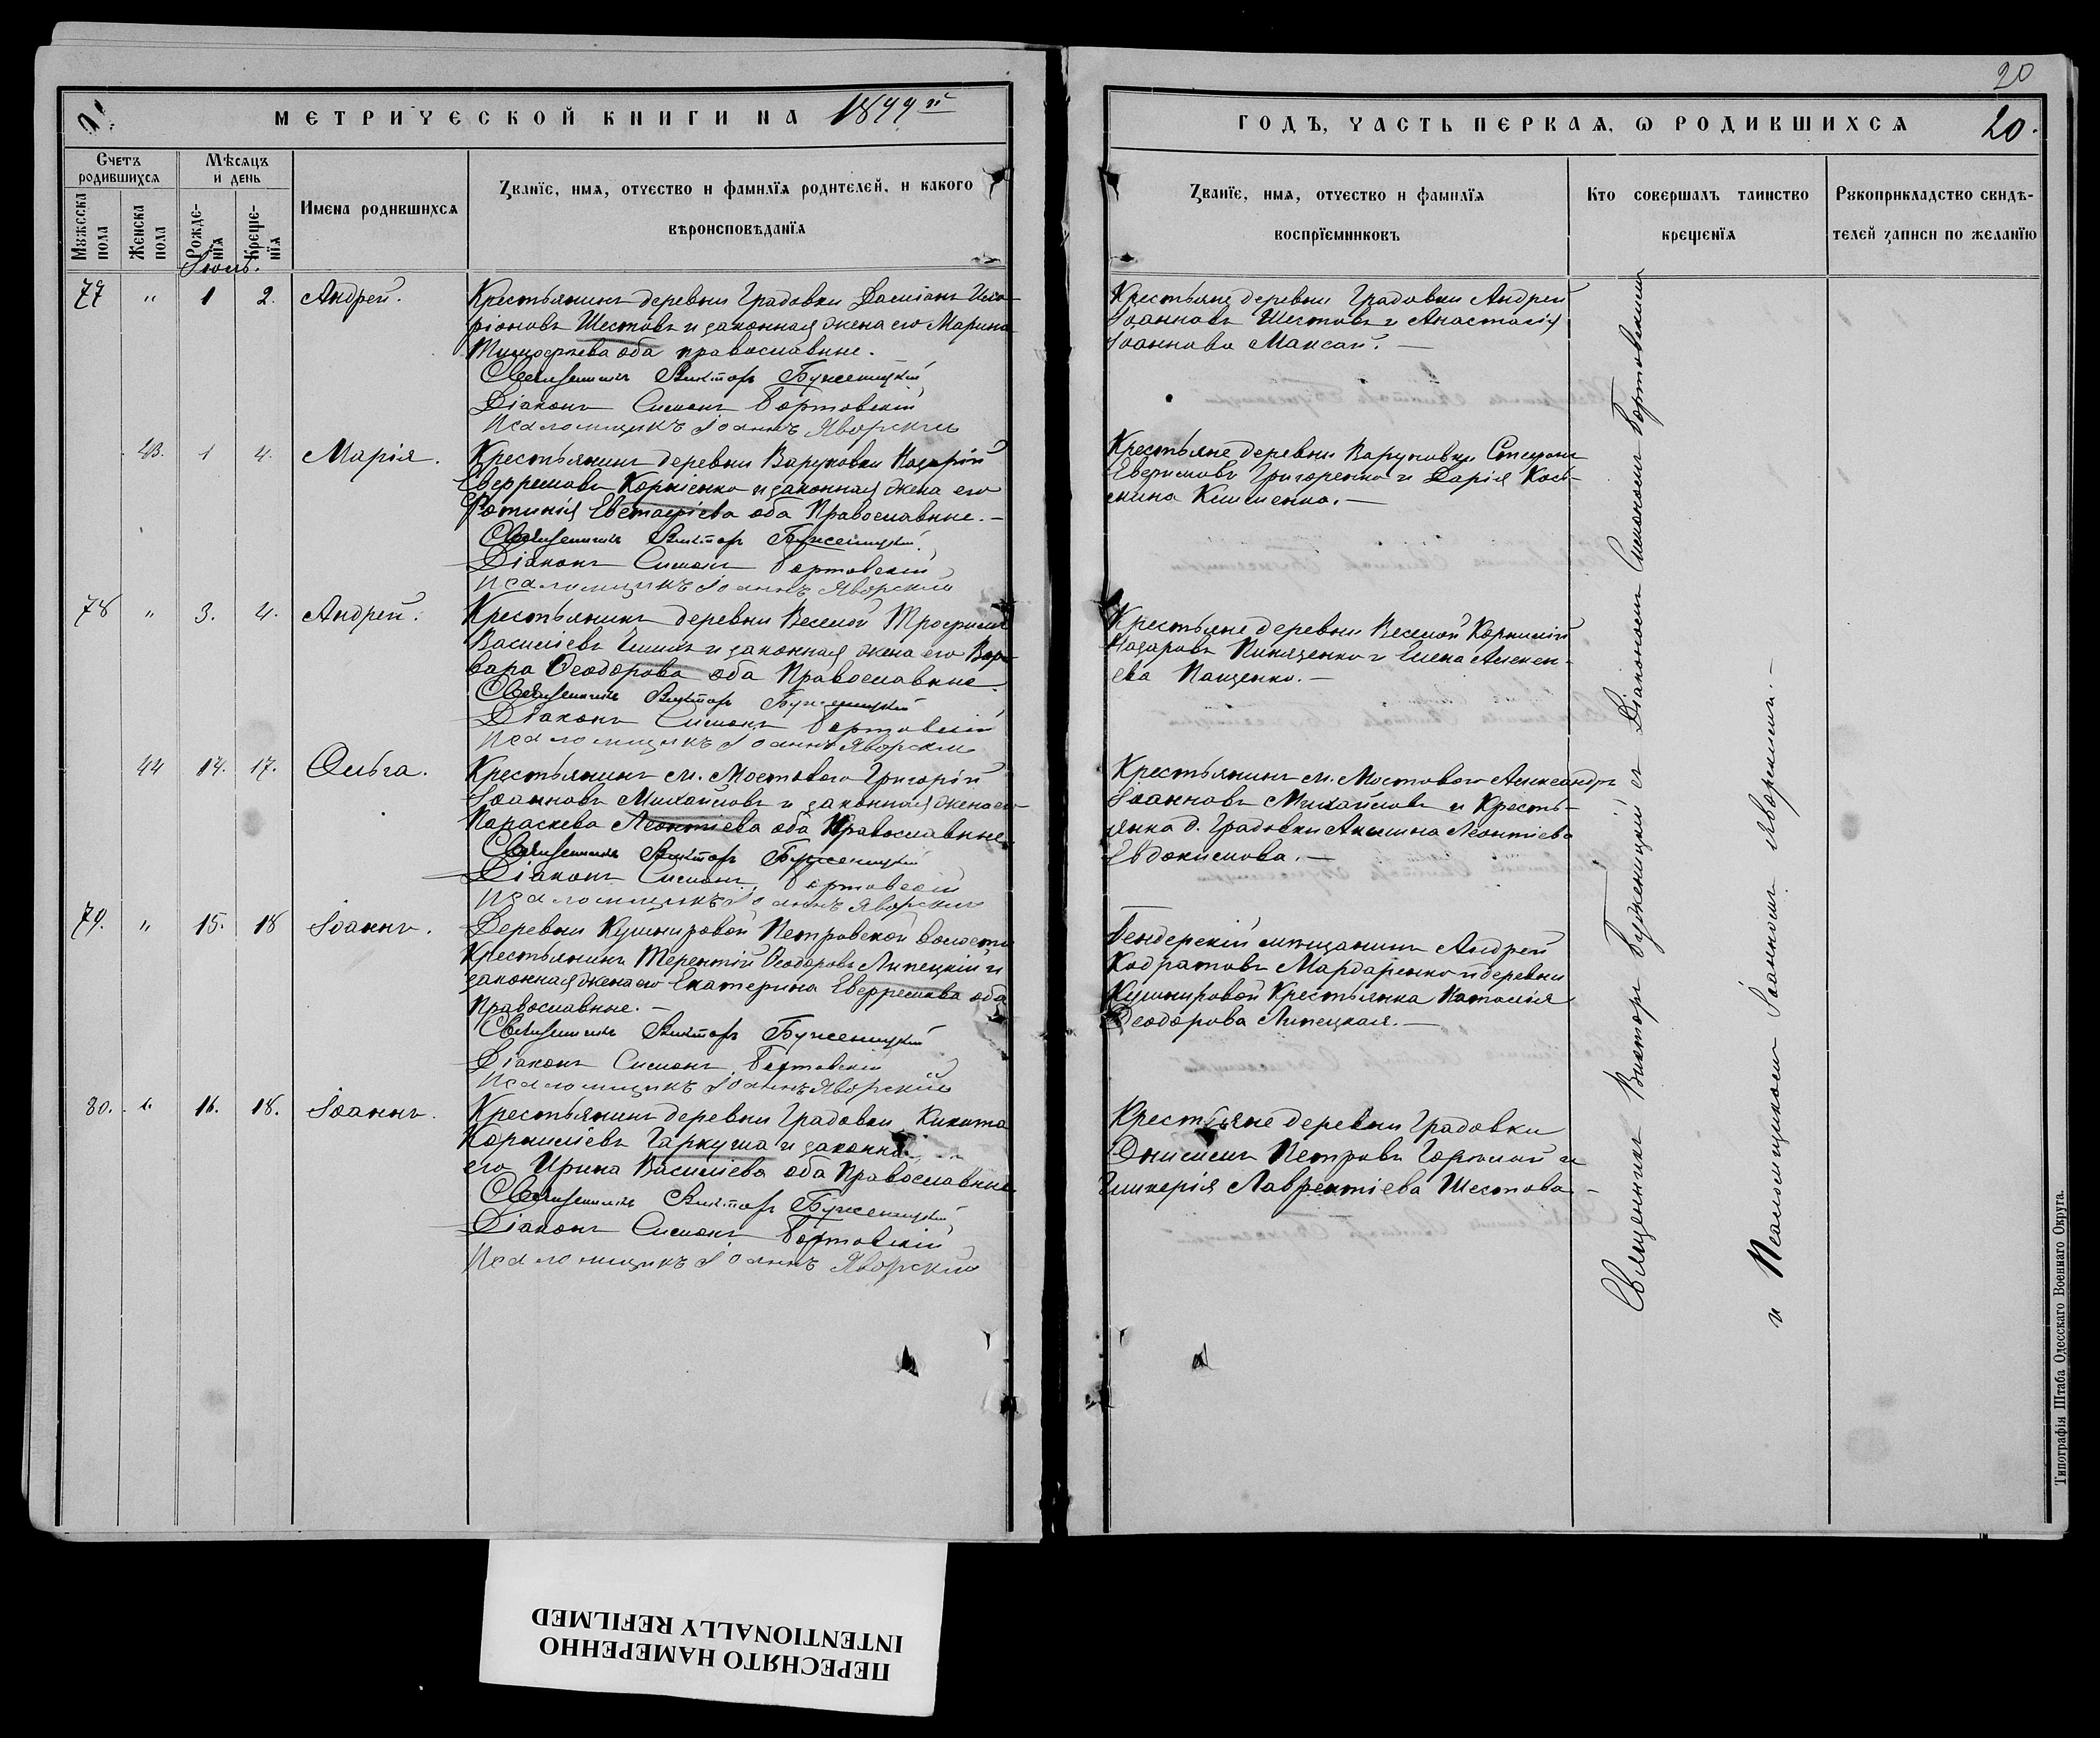 МЕТРИЧЕСКОЙ КНИГИ НА 1899й
Счетъ родившихся
Мужеска пола
Женска пола
Мѣсяцъ и день
Рожденія
Крещенія
Имена родившихся
Званіе, имя, отчество и фамилія родителей, и какого
вѣроисповѣданія
Іюль.
77 " 1 2. Андрей.
Крестьянинъ деревни Градовки Даміанъ Ила-
ріоновъ Шестовъ и законная жена его Марина
Тимофеева оба православные.
Священникъ Викторъ Буженицкій
Діаконъ Симонъ Бортовскій
Псаломщикъ Іоаннъ Яворскій
43. 1 4. Марія.
Крестьянинъ деревни Варуновки Назарій
Евфремовъ Корніенко и законная жена его
Фотинія Евстафіева оба Православные. —
Священникъ Викторъ Буженицкій
Діаконъ Симонъ Бортовскій
Псаломщикъ Іоаннъ Яворскій
78 " 3. 4. Андрей.
Крестьянинъ деревни Веселой Трофимъ
Василіевъ и законная жена его Вар-
вара Ѳеодорова оба Православные.
Священникъ Викторъ Буженицкій
Діаконъ Симонъ Бортовскій
Псаломщикъ Іоаннъ Яворскій
44 14. 17. Ольга.
Крестьянинъ м. Мостоваго Григорій
Іоанновъ Михайловъ и законная жена его
Параскева Леонтіева оба Православные
Священникъ Викторъ Буженицкій
Діаконъ Симонъ Бортовскій
Псаломщикъ Іоаннъ Яворскій
79. " 15. 18 Іоаннъ.
Деревни Кушнировой Петровской волости
Крестьянинъ Терентій Ѳеодоровъ Липецкій и
законная жена его Екатерина Евфремова оба
Православные. —
Священникъ Викторъ Буженицкій
Діаконъ Симонъ Бортовскій
Псаломщикъ Іоаннъ Яворскій
80. " 16. 18. Іоаннъ.
Крестьянинъ деревни Градовки Никита
Корниліевъ Гаркуша и законна
его Ирина Василіева оба Православные
Священникъ Викторъ Буженицкій
Діаконъ Симонъ Бортовскій
Псаломщикъ Іоаннъ Яворскій
20
ГОДЪ, ЧАСТЬ ПЕРВАЯ, Ѡ РОДИВШИХСЯ 20.
Званіе, имя, отчество и фамилія
воспріемниковъ
Кто совершалъ таинство
крещенія
Рукоприкладство свидѣ-
телей записи по желанію
Крестьяне деревни Градовки Андрей
Іоанновъ Шестовъ и Анастасія
Іоаннова Максай. —
Крестьяне деревни Варуновки Стефанъ
Евфимовъ Григоренко и Дарія Косъ-
мина Клименко. —
Крестьяне деревни Веселой Корнилій
Назаровъ и Елена Алексе-
ева Пащенко. —
Крестьянинъ м. Мостоваго Александръ
Іоанновъ Михайловъ и Кресть-
янка д. Градовки Акилина Леонтіева
Евдокимова. —
Бендерскій мѣщанинъ Андрей
Кодратовъ Мардаренко и деревни
Кушнировой Крестьянка Наталія
Ѳеодорова Липецкая. —
Крестьяне деревни Градовки
Онисимъ Петровъ и
Гликерія Лаврентіева Шестова —
Священникъ Викторъ Буженицкій съ Діакономъ Симономъ Бортовскимъ
и Псаломщикомъ Іоанномъ Яворскимъ. —
Типографія Штаба Одесскаго Военнаго Округа.
ПЕРЕСНЯТО НАМЕРЕННО
INTENTIONALLY REFILMED